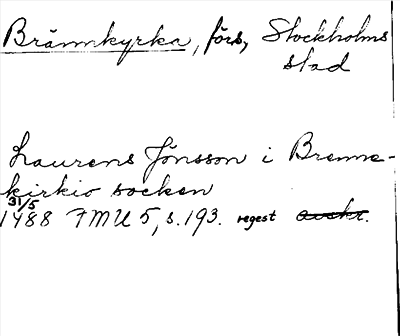 Brännkyrka, förs, Stockholms
stad
Laurens Jönsson i Brenne-
kirkio socken
31/5
1488 FMU 5, s. 193. regest avskr.